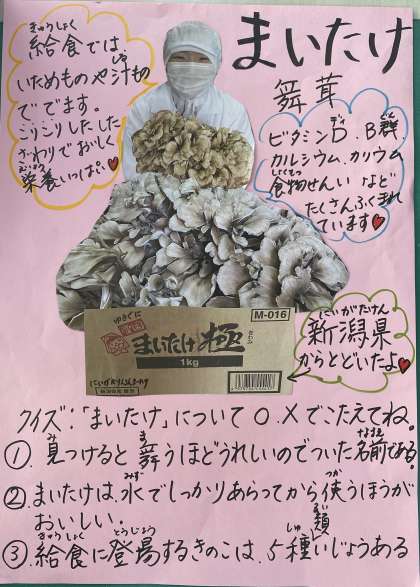 まいたけ
舞茸
給食では、
いためものや汁もの
でででます。
こりこりしたした
ざわりでおいしく
栄養いっぱい♥
ビタミンD、B群
カルシウム、カリウム
食物せんい など
たくさんふくまれ
ています♥
M-016
ゆきぐに
まいたけ 極
1kg
にいがたけん
新潟県
からとどいたよ♥
クイズ:「まいたけ」について〇、✕でこたえてね。
①.見つけると舞うほどうれしいのでついた名前である。
②.まいたけは、水でしっかりあらってから使うほうが
おいしい。
③.給食に登場するきのこは、5種類いじょうある